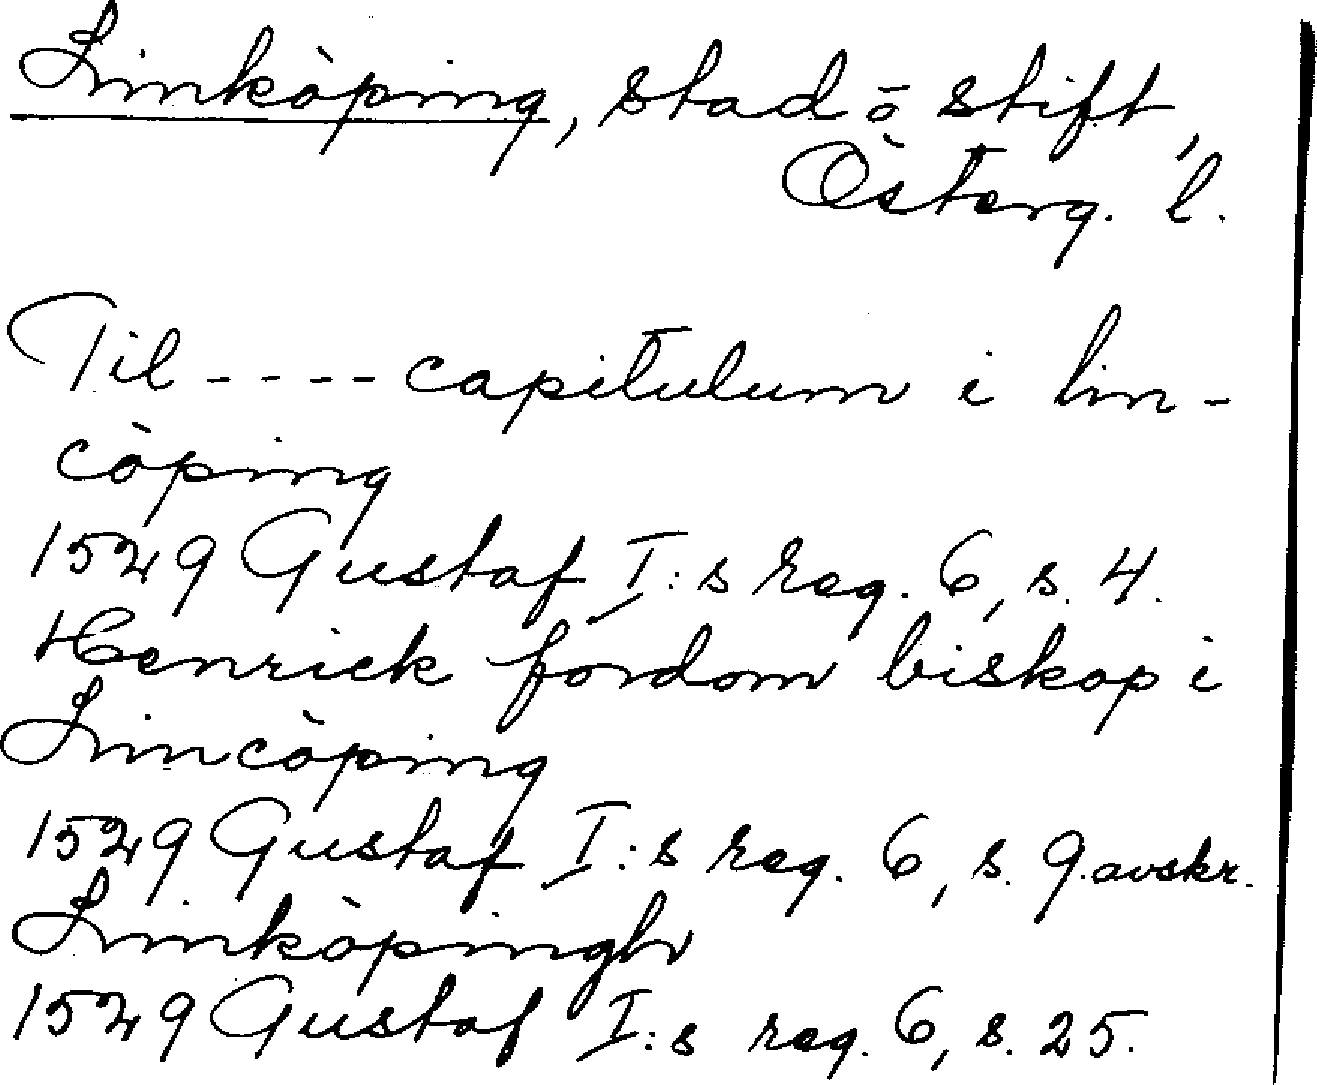 Linköping, stad o stift,
Österg. l.
Til ---- capitulum i lin-
cöping
1529 Gustaf I:s reg. 6, s. 4.
Henrick fordom biskop i
Lincöping
1529 Gustaf I:s reg. 6, s. 9. avskr.
Linköpingh
1529 Gustaf I:s reg. 6, s. 25.